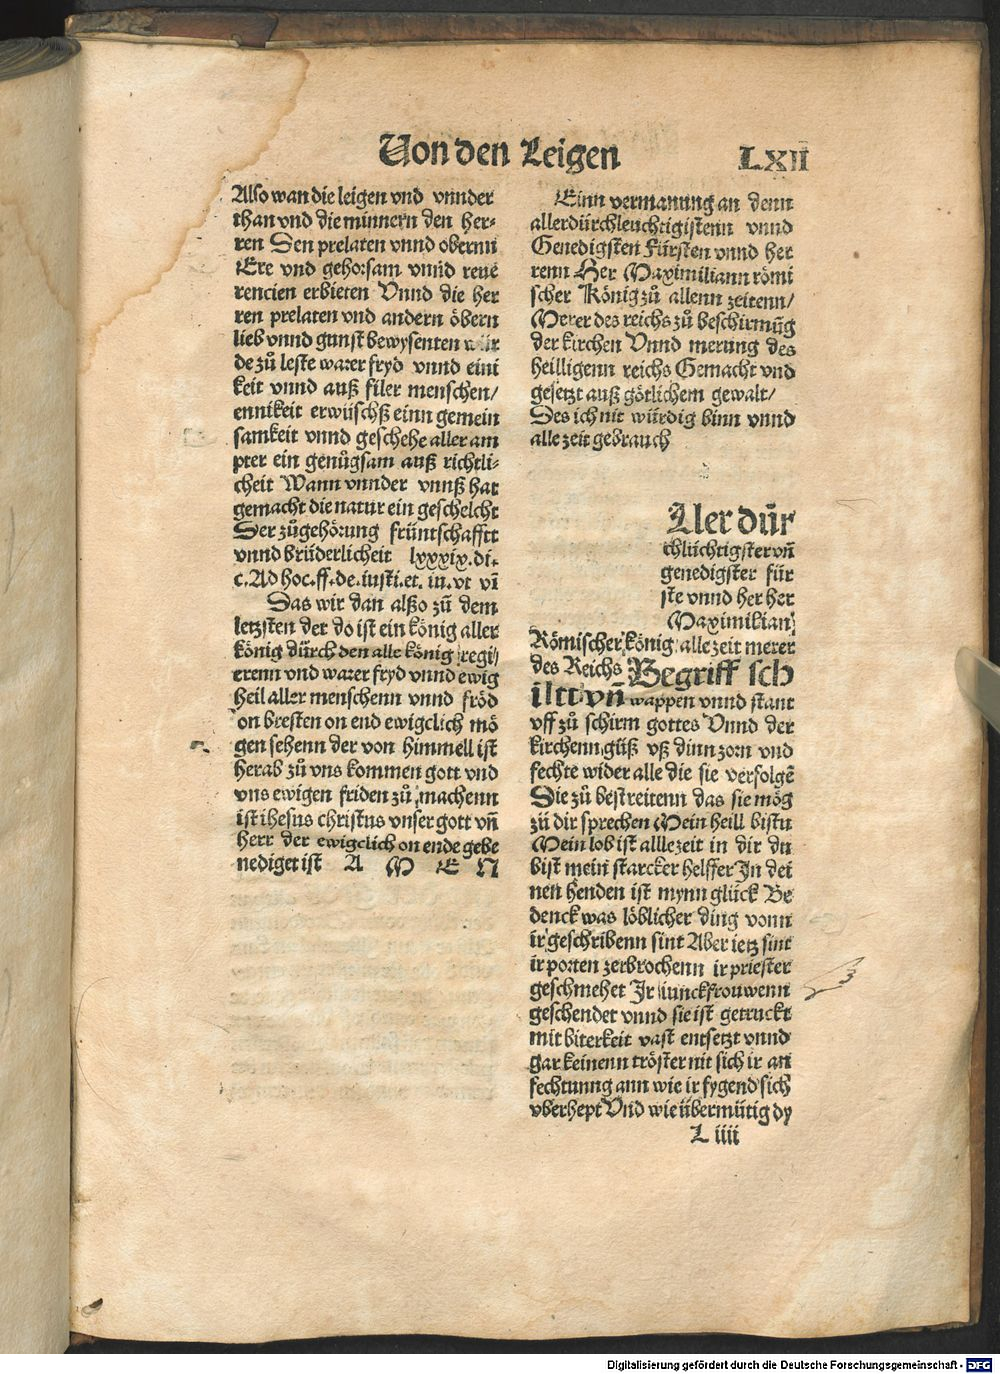 Von den Leigen
LXII
Also wan die leigen vnd vnnder
than vnd die minnern den her⸗
ren Den prelaten vnnd obernn
Ere vnd gehorsam vnnd reue
rencien erbieten Vnnd die her
ren prelaten vnd andern öbern
lieb vnnd gunst bewysenten
de zů leste warer fryd vnnd eini
keit vnnd auß filer menschen/
ennikeit erwüschß einn gemein
samkeit vnnd geschehe aller am
pter ein genůgsam auß richtli⸗
cheit Wann vnnder vnnß hat
gemacht die natur ein geschelcht
Der zůgehörung früntschafftt
vnnd brüderlicheit lxxxix.di.
c.Ad hoc.ff.de.iusti.et.in.vt vi
Das wir dan alßo zů dem
letzsten der do ist ein könig aller
könig dürch den alle könig regi/
erenn vnd warer fryd vnnd ewig
heil aller menschenn vnnd fröd
on bresten on end ewigclich mö
gen sehenn der von himmell ist
herab zů vns kommen gott vnd
vns ewigen friden zů machenn
ist ihesus christus vnser gott vñ
herr der ewigclich on ende gebe
nediget ist A M E N
Einn vermanung an denn
allerdürchleuchtigistenn vnnd
Genedigsten Fürsten vnnd her
renn Her Maximiliann römi
scher König zů allenn zeitenn/
Merer des reichs zů beschirmũg
der kirchen Vnnd merung des
heilligenn reichs Gemacht vnd
gesetzt auß götlichem gewalt/
Des ich nit würdig binn vnnd
alle zeit gebrauch
Aller dür
chlüchtigster vñ
genedigster für
ste vnnd her her
Maximilian
Römischer könig alle zeit merer
des Reichs Begriff sch
iltt vñ wappen vnnd stant
vff zů schirm gottes Vnnd der
kirchenn güß vß dinn zorn vnd
fechte wider alle die sie verfolgẽ
Die zů bestreitenn das sie mög
zů dir sprechen Mein heill bistu
Mein lob ist alllezeit in dir du
bist mein starcker helffer In dei
nen henden ist mynn glück Be
denck was löblicher ding vonn
ir geschribenn sint Aber ietz sint
ir porten zerbrochenn ir priester
geschmehet Ir iunckfrouwenn
geschendet vnnd sie ist getruckt
mit biterkeit vast entsetzt vnnd
gar keinenn tröster nit sich ir an
fechtunng ann wie ir fygend sich
vberhept Vnd wie übermütig dy
L iiii
Digitalisierung gefördert durch die Deutsche Forschungsgemeinschaft - DFG